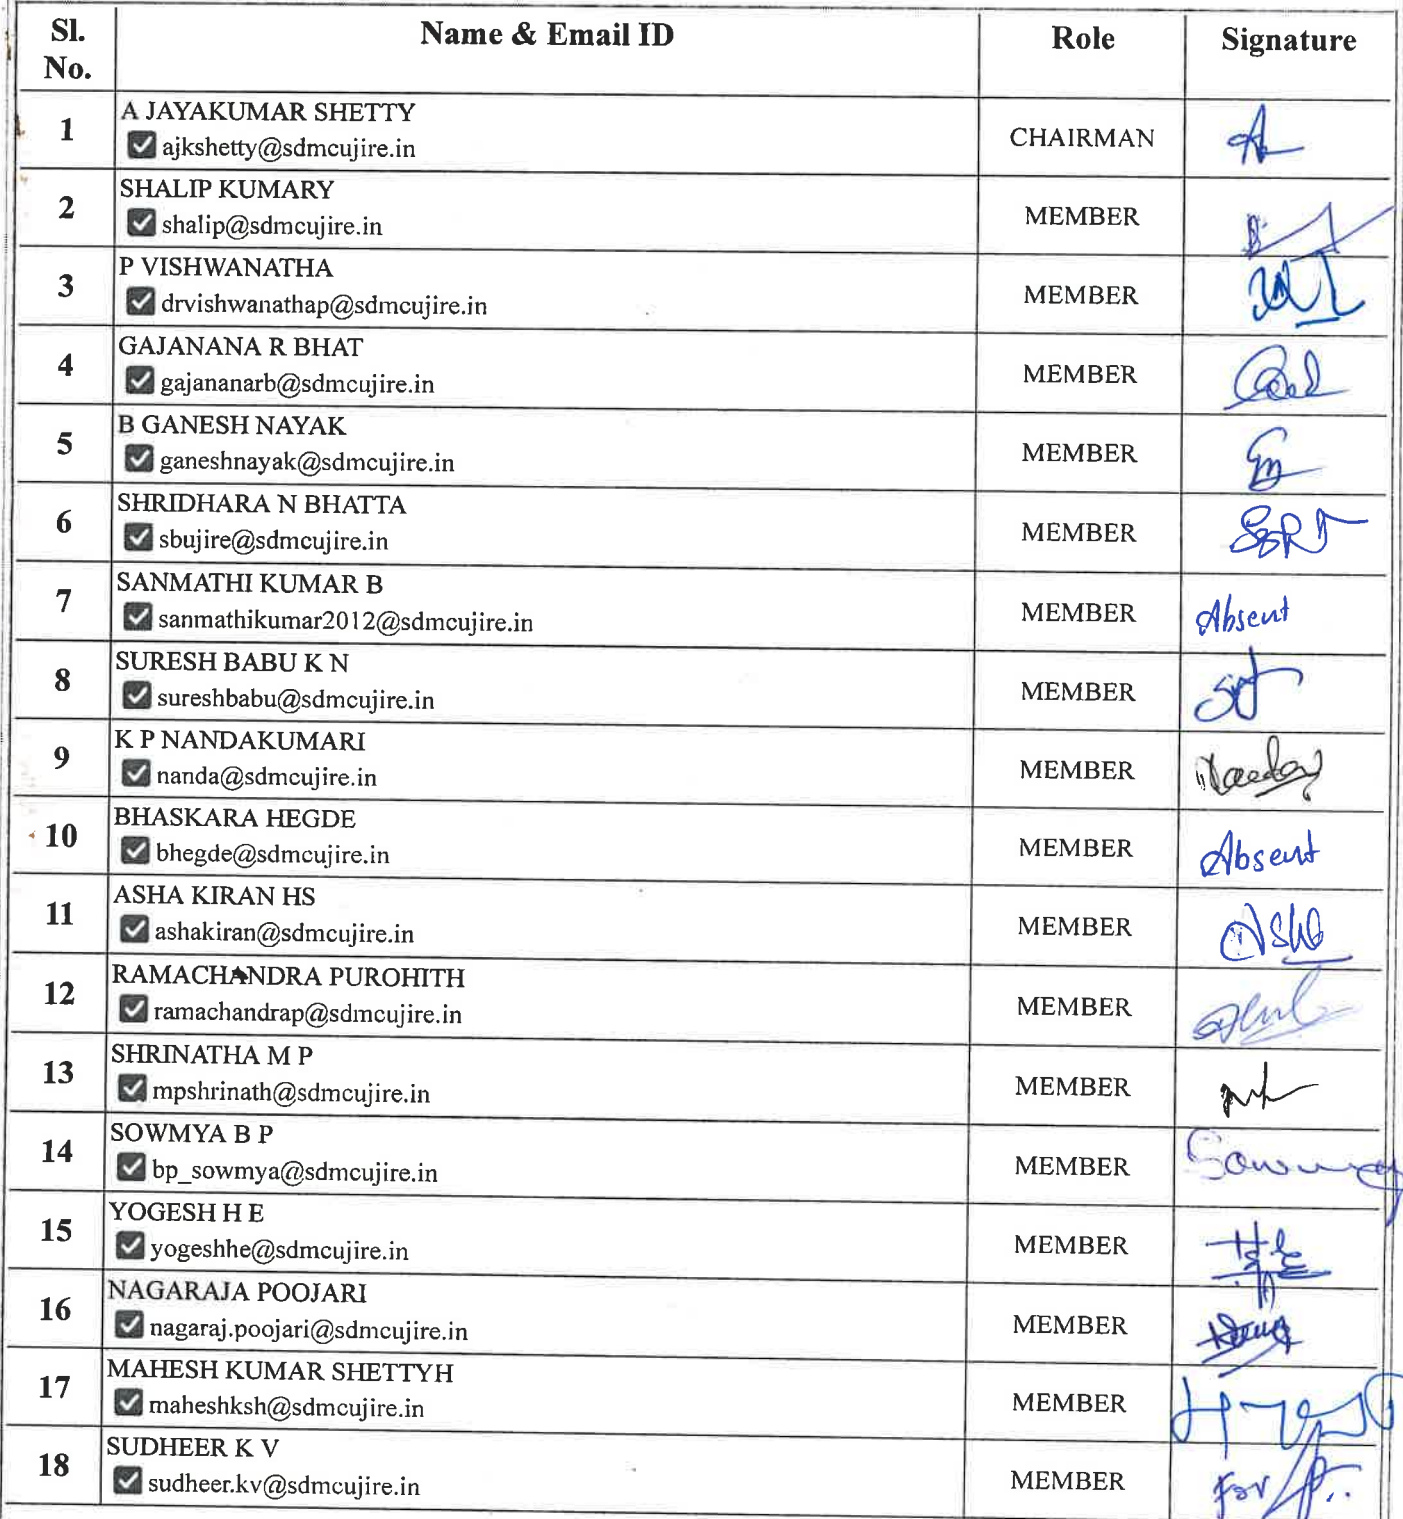 Sl. No. Name & Email ID Role Signature
1 A JAYAKUMAR SHETTY
ajkshetty@sdmcujire.in CHAIRMAN
2 SHALIP KUMARY
shalip@sdmcujire.in MEMBER
3 P VISHWANATHA
drvishwanathap@sdmcujire.in MEMBER
4 GAJANANA R BHAT
gajananarb@sdmcujire.in MEMBER
5 B GANESH NAYAK
ganeshnayak@sdmcujire.in MEMBER
6 SHRIDHARA N BHATTA
sbujire@sdmcujire.in MEMBER
7 SANMATHI KUMAR B
sanmathikumar2012@sdmcujire.in MEMBER Absent
8 SURESH BABU K N
sureshbabu@sdmcujire.in MEMBER
9 K P NANDAKUMARI
nanda@sdmcujire.in MEMBER
10 BHASKARA HEGDE
bhegde@sdmcujire.in MEMBER Absent
11 ASHA KIRAN HS
ashakiran@sdmcujire.in MEMBER
12 RAMACHANDRA PUROHITH
ramachandrap@sdmcujire.in MEMBER
13 SHRINATHA M P
mpshrinath@sdmcujire.in MEMBER
14 SOWMYA B P
bp_sowmya@sdmcujire.in MEMBER
15 YOGESH H E
yogeshhe@sdmcujire.in MEMBER
16 NAGARAJA POOJARI
nagaraj.poojari@sdmcujire.in MEMBER
17 MAHESH KUMAR SHETTYH
maheshksh@sdmcujire.in MEMBER
18 SUDHEER K V
sudheer.kv@sdmcujire.in MEMBER For